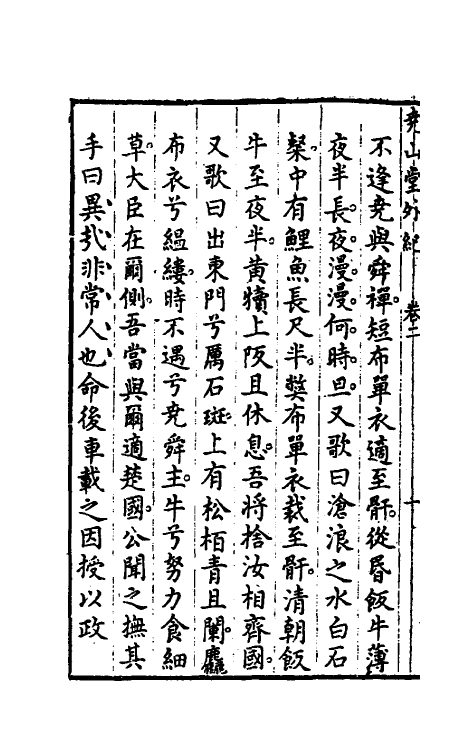 堯山堂外紀 卷二 十
不逢堯與舜禪。短布單衣適至骭。從昏飯牛薄
夜半。長夜漫漫何時旦。又歌曰滄浪之水白石
粲。中有鯉魚長尺半。弊布單衣裁至骭。清朝飯
牛至夜半。黃犢上阪且休息。吾將捨汝相齊國。
又歌曰出東門兮厲石斑。上有松栢青且闌。麤
布衣兮縕縷。時不遇兮堯舜主。牛兮努力食細
草。大臣在爾側。吾當與爾適楚國。公聞之撫其
手曰異哉非常人也命後車載之因授以政